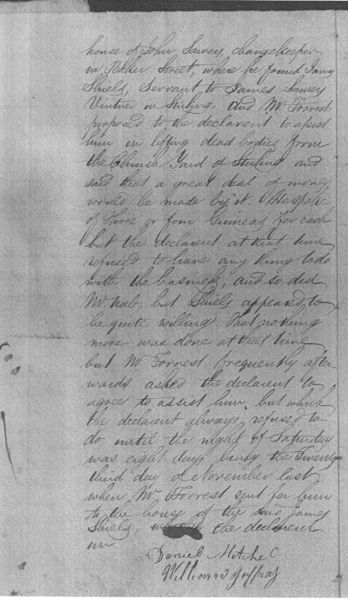 house of John Sawers, changekeeper
in Baker Street, where he found Jams
Shiels, Servant, to James Sawers
Vintner in Stirling. and Mr Forrest
proposed to the declarent to assist
him in lifting dead bodies from
the Church Yard of Stirling and
said that a great deal of money
would be made by it. 
of three or four Guineas for each
but the declarent at that time
refused to have any thing to do
with the business, and so did
McNab, but Shiels appeared to
be quite willing. That nothing
more was done at that time
but Mr Forrest, frequently after
wards asked the declarent to
agree to assist him, but which
the declarent always refused to
do until the night of Saturday
was eight days being the Twenty
third day of November last
when, Mr Forrest sent for him
to the house of the said James
Shiels, the declarent
Daniel Mitchel
William Jaffray